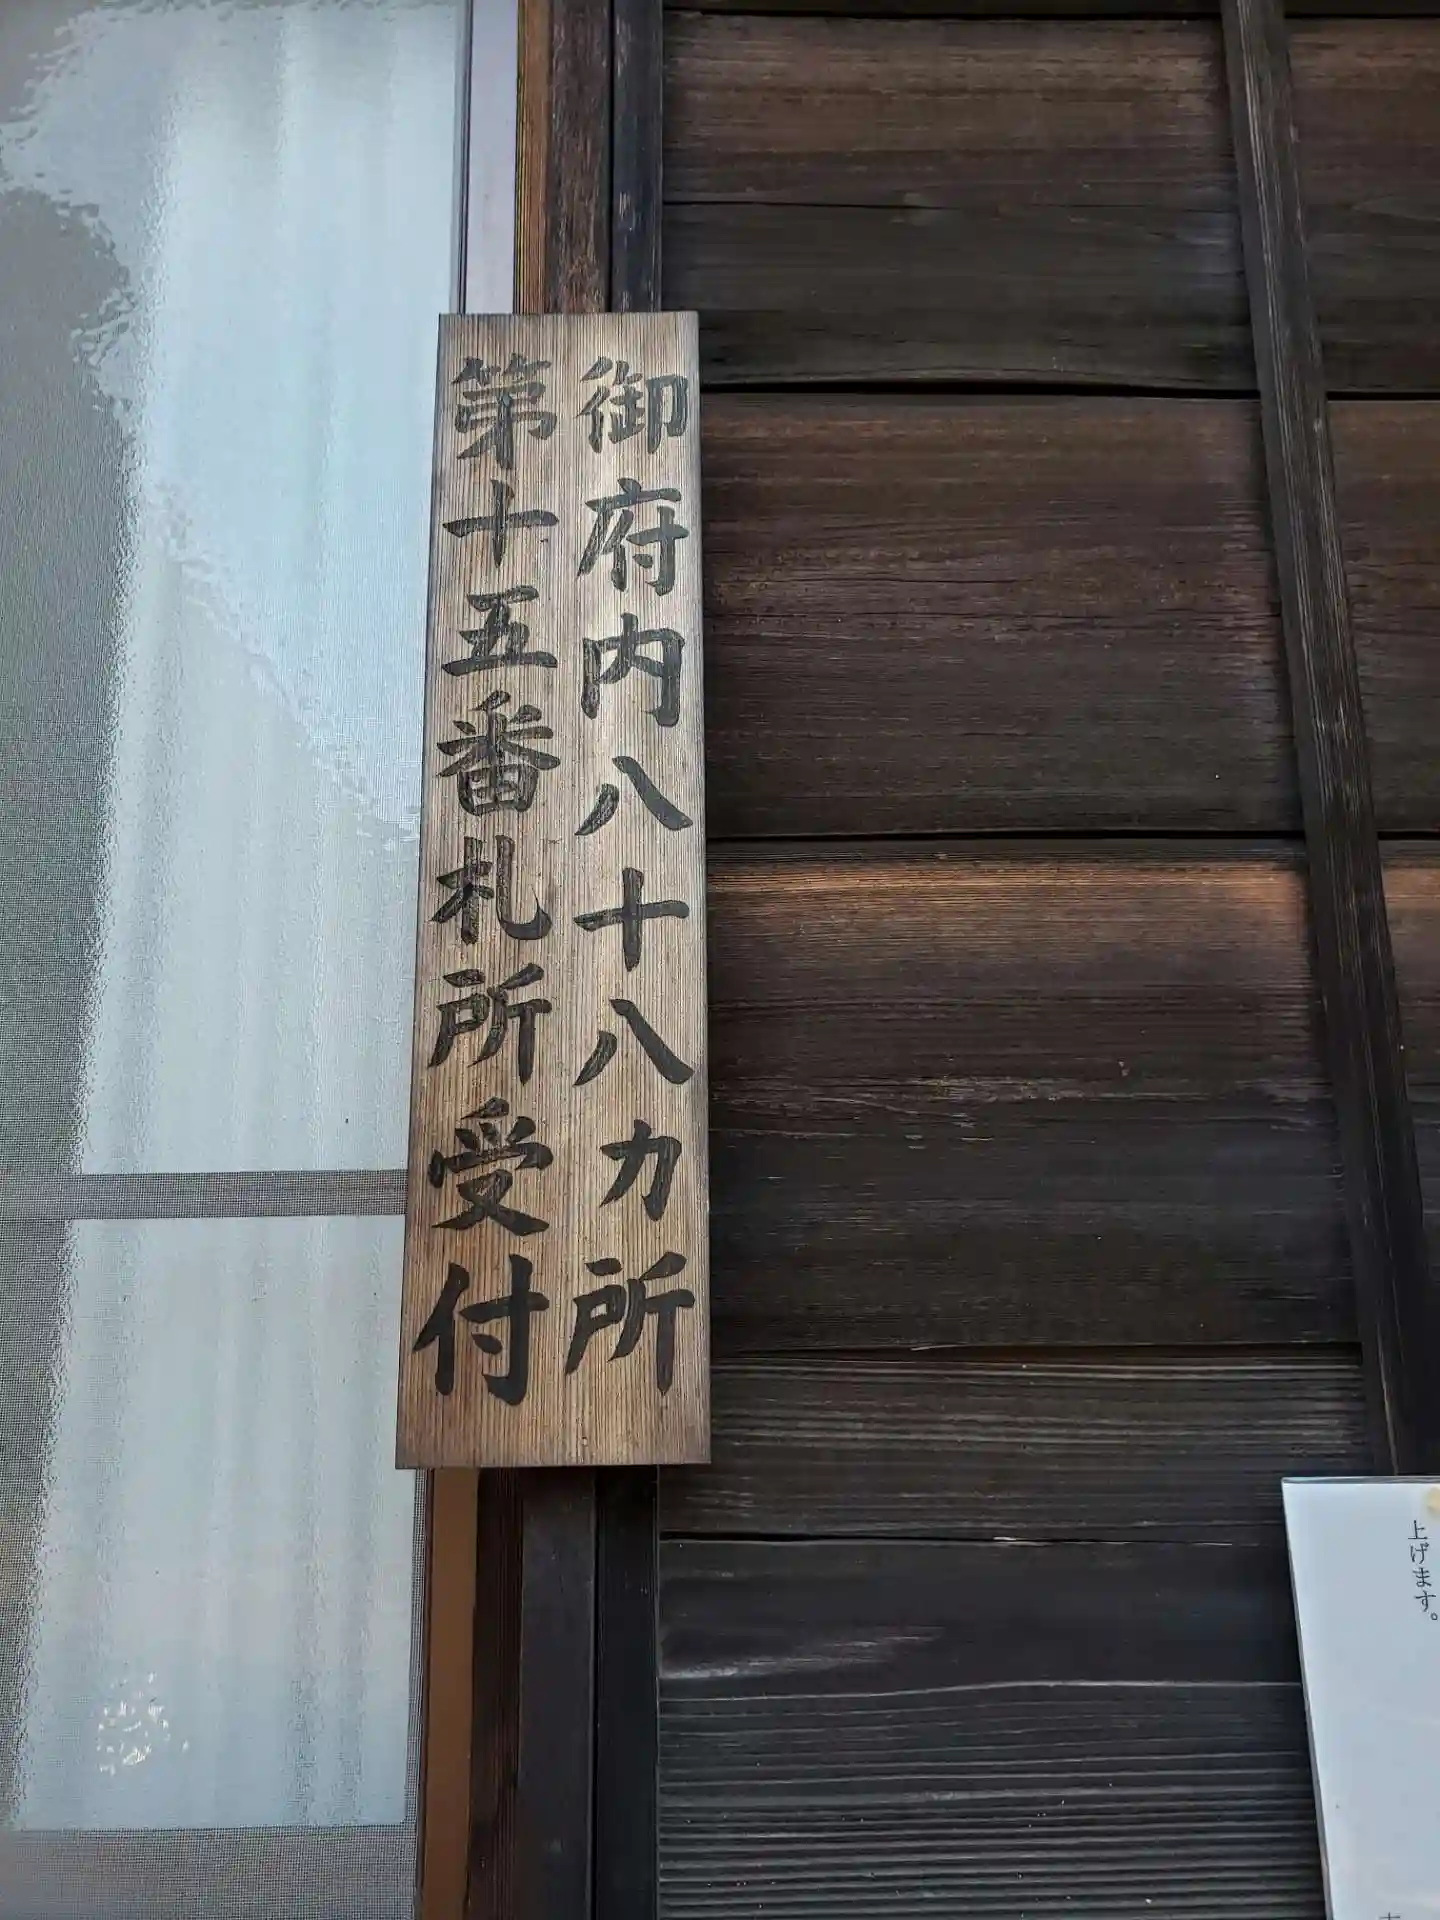 御府内八十八カ所
第十五番札所受付
上げます。